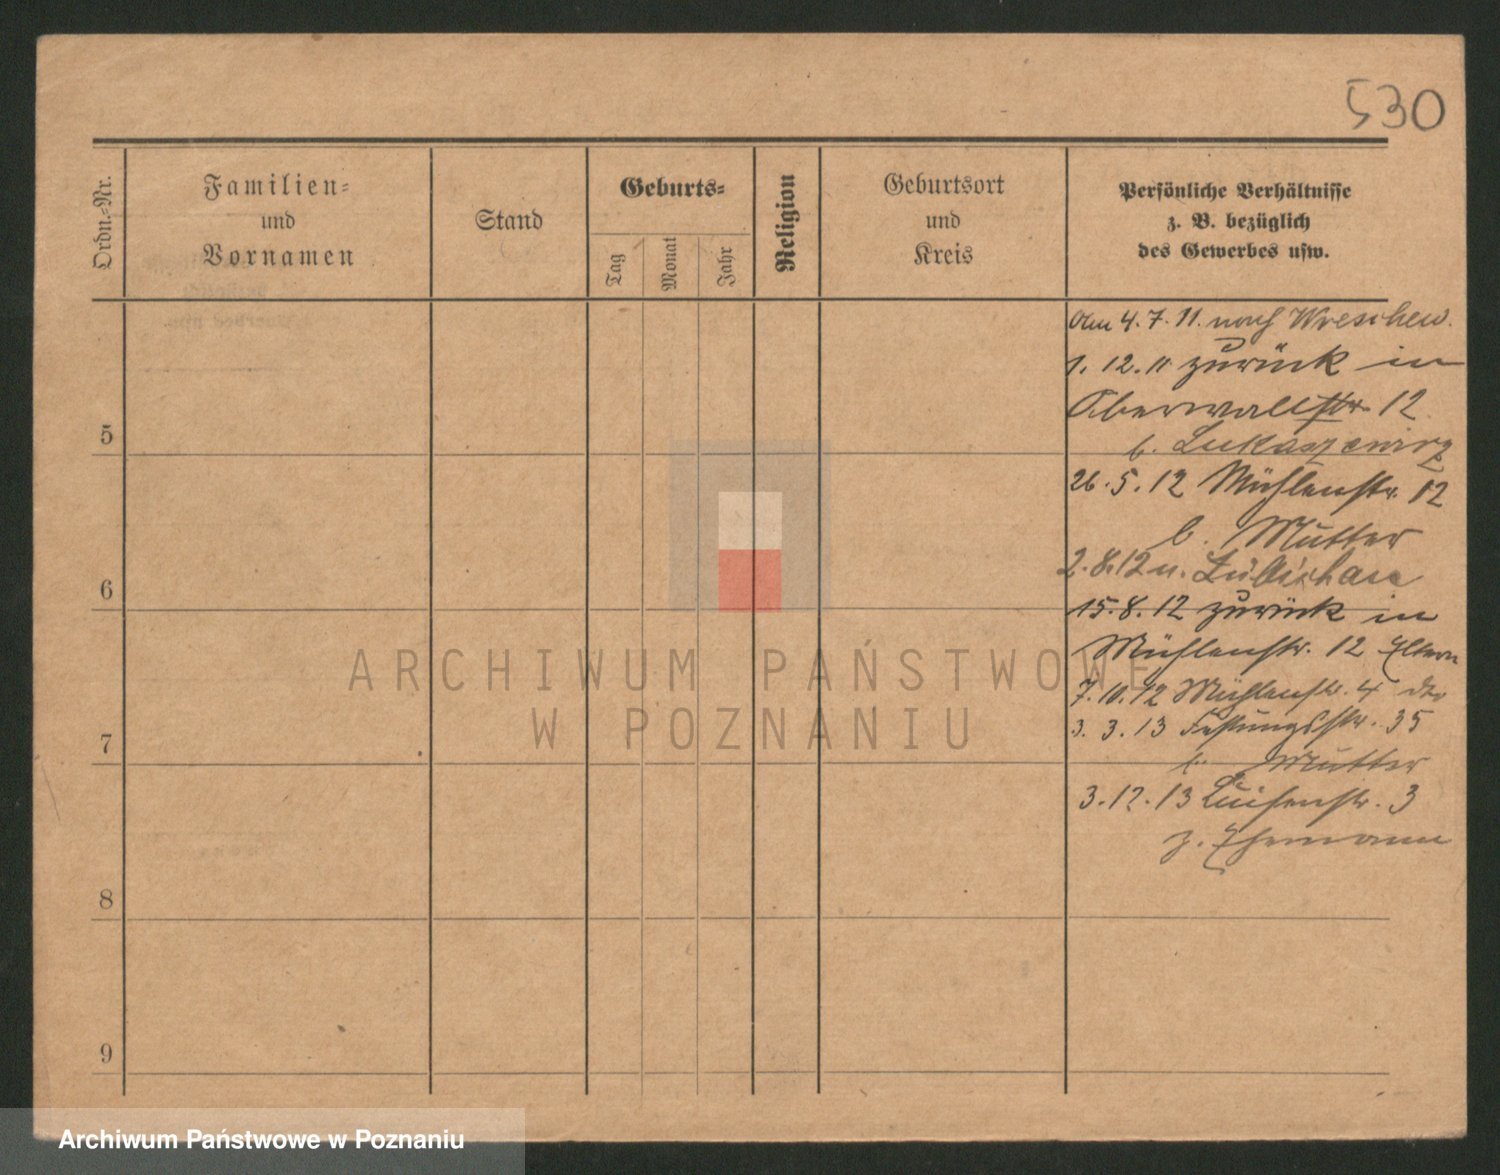 530
Ordn.-Nr.
Familien-
und
Vornamen
Stand
Geburts-
Tag
Monat
Jahr
Religion
Geburtsort
und
Kreis
Persönliche Verhältnisse
z. B. bezüglich
des Gewerbes usw.
Am 4.7.11. nach Wreschen.
1.12.11 zurück in
Oberwallstr. 12
5
b. Lukaszewicz
26.5.12 Mühlenstr. 12
b. Mutter
2.8.12 n.
6
15.8.12 zurück in
Mühlenstr. 12 Eltern
7.10.12 Mühlenstr. 4 dto
3.3.13 Festungsstr. 35
7
b. Mutter
3.12.13 Luisenstr. 3
z. Ehemann
8
9
ARCHIWUM PAŃSTWOWE
W POZNANIU
Archiwum Państwowe w Poznaniu